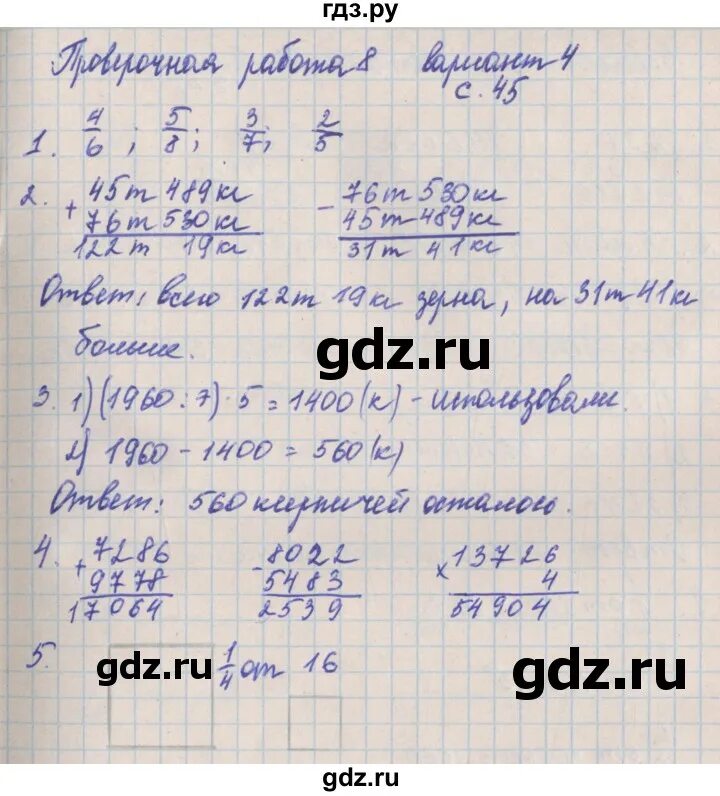 гдз.ру
Проверочная работа 8 вариант 4
с. 45
1. 4/6 ; 5/8; 3/7; 2/5
2. + 45т 489кг - 76т 530кг
76т 530кг 45т 489кг
122т 19кг 31т 41кг
Ответ: всего 122т 19кг зерна, на 31т 41кг
больше.
gdz.ru
3. 1) (1960 : 7) · 5 = 1400 (к) - использовали.
2) 1960 - 1400 = 560 (к)
Ответ: 560 кирпичей осталось.
4. + 7286 - 8022 x 13726
9778 5483 4
17064 2539 54904
5. gdz.ru 1/4 от 16
gdz.ru
gdz.ru